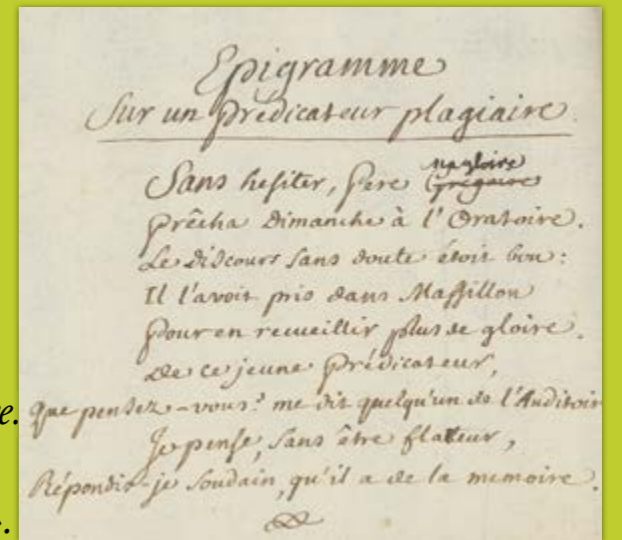 Epigramme
Sur un Prédicateur plagiaire.
Sans hesiter, Pere Magloire Gregoire
Prêcha Dimanche à l'Oratoire.
Le discours sans doute étoit bon:
Il l'avoit pris dans Massillon
Pour en recueillir plus de gloire.
De ce jeune Prédicateur,
re. Que pensez-vous? me dit quelqu'un de l'Auditoir
Je pense, sans être flateur,
Répondis-je soudain, qu'il a de la memoire.
.